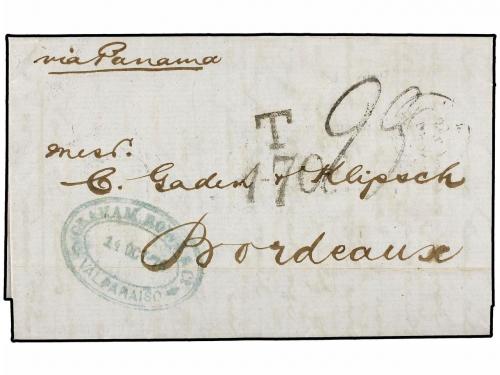 via Panama
T 99
170
Mess.
C. Gaden & Klipsch
Bordeaux
GRAHAM ROWE & Co
24 OC
VALPARAISO